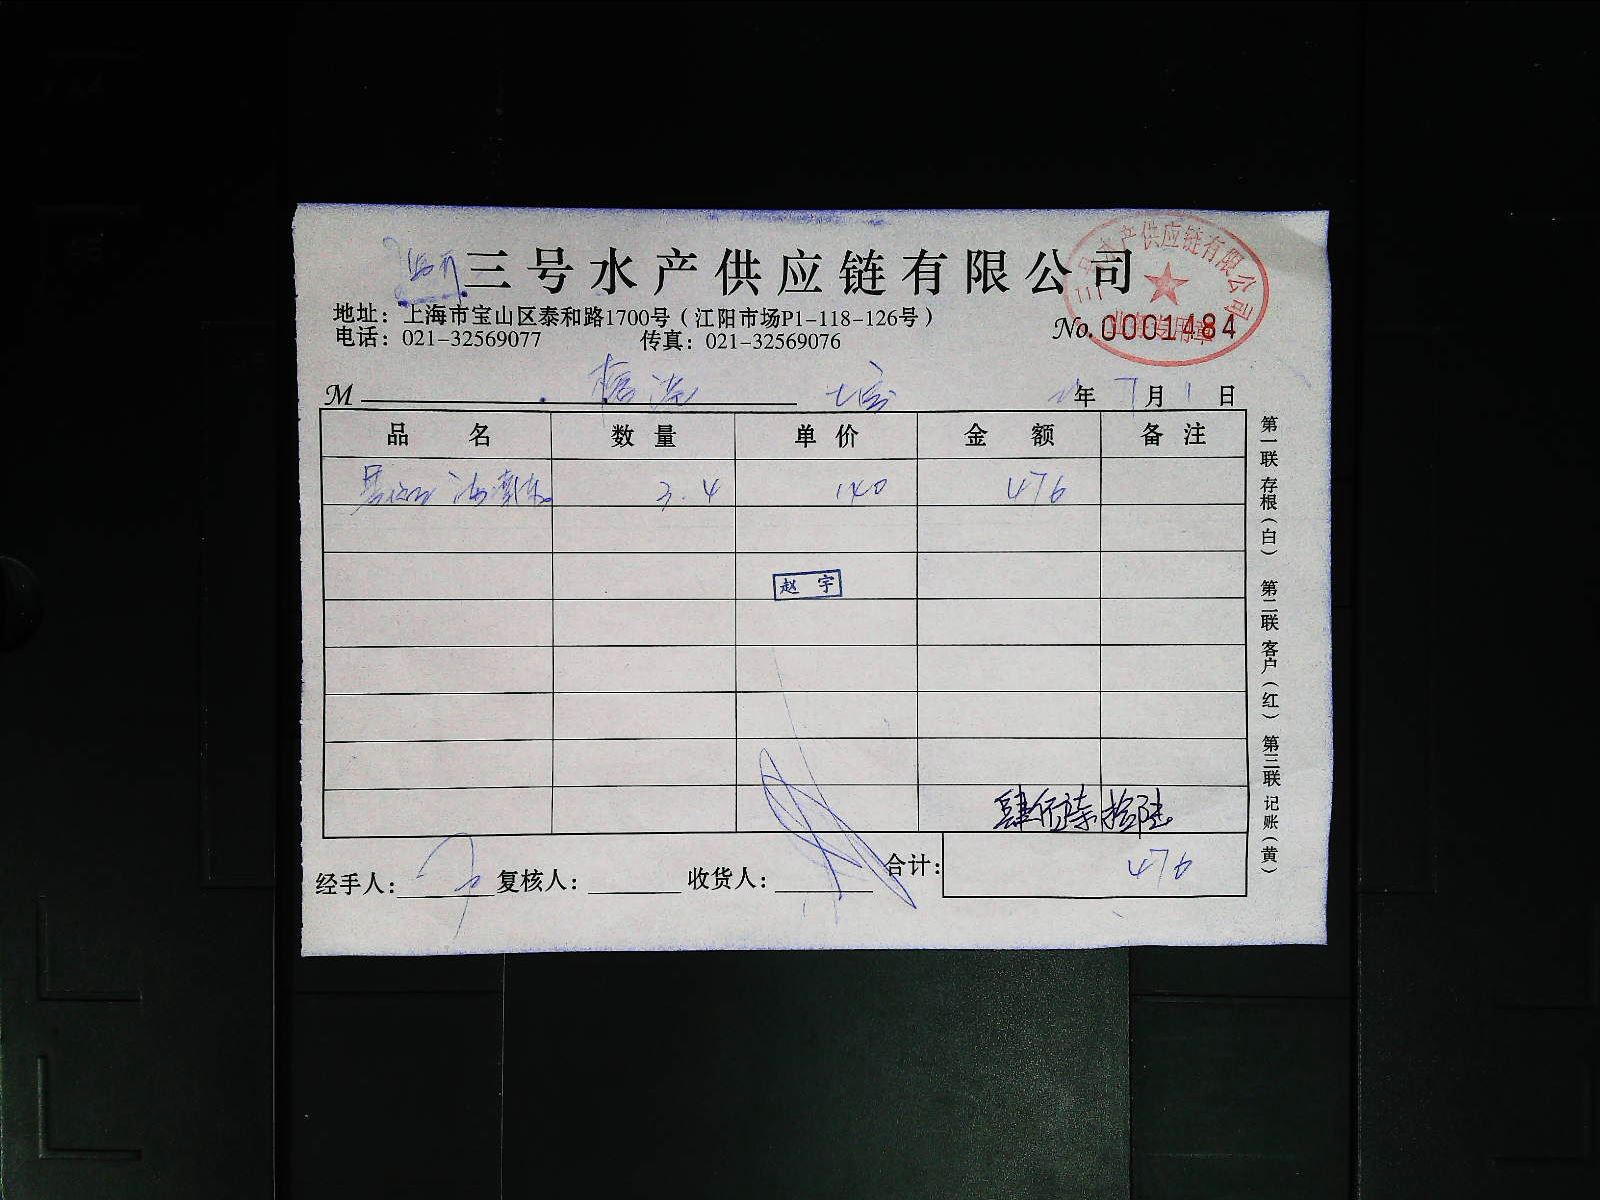 三号水产供应链有限公司
三号水产供应链有限公司
业务专用章
地址：上海市宝山区泰和路1700号（江阳市场P1-118-126号）
电话：021-32569077 传真：021-32569076
No. 0001484
M 年 7 月 1 日
品名 数量 单价 金额 备注
3.4 140 476
赵宇
肆佰柒拾陆
合计：476
经手人： 复核人： 收货人：
第一联 存根（白） 第二联 客户（红） 第三联 记账（黄）